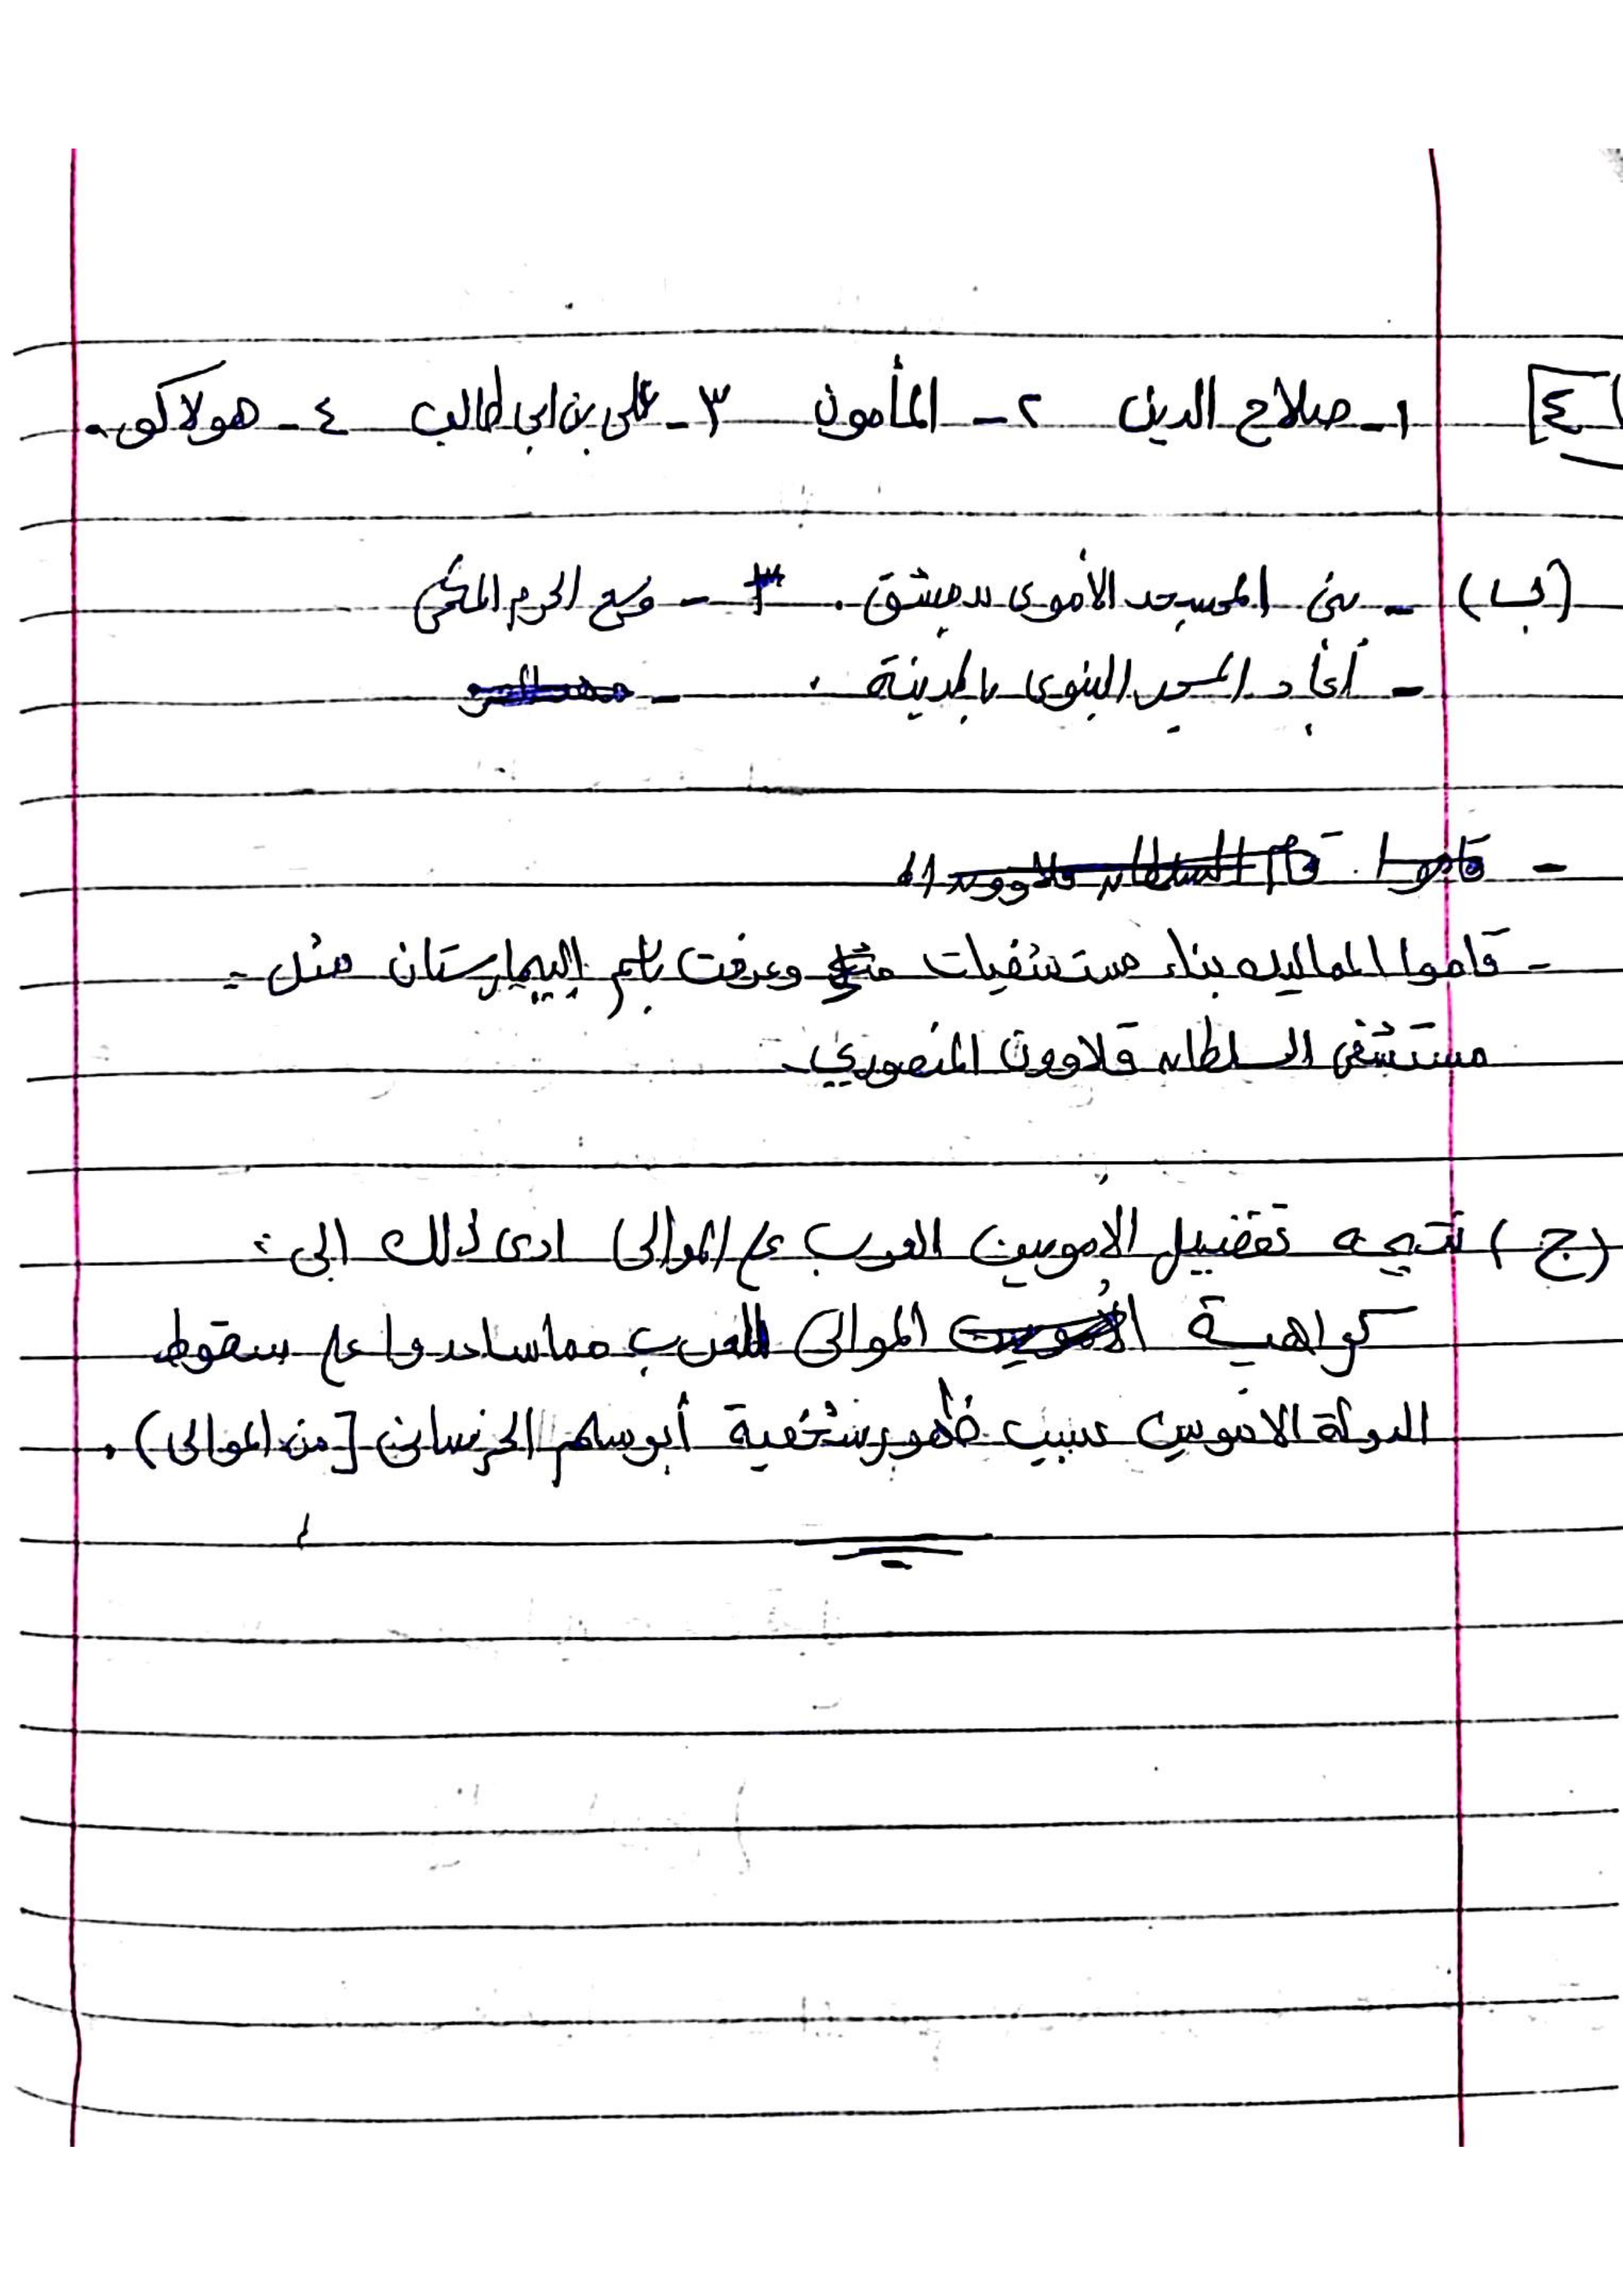 ٤] ١ـ صلاح الدين ٢ـ المأمون ٣ـ على بن ابى طالب ٤ـ هولاكو.
(ب) ـ بنى المسجد الأموى بدمشق. ـ وسع الحرم المكى
ـ أعاد المسجد النبوى بالمدينة.
ـ قاموا. قام السلطان قلاوون ال
ـ قاموا المماليك بناء مستشفيات وعرفت باسم البيمارستان مثل :ـ
مستشفى السلطان قلاوون المنصوري.
(ج) نتيجه تفضيل الأمويين العرب على الموالى ادى ذلك الى :
كراهية الأمويين الموالى للعرب مما ساعدوا على سقوط
الدولة الامويين بسبب ظهور شخصية أبو سلم الخرسانى [من الموالى).